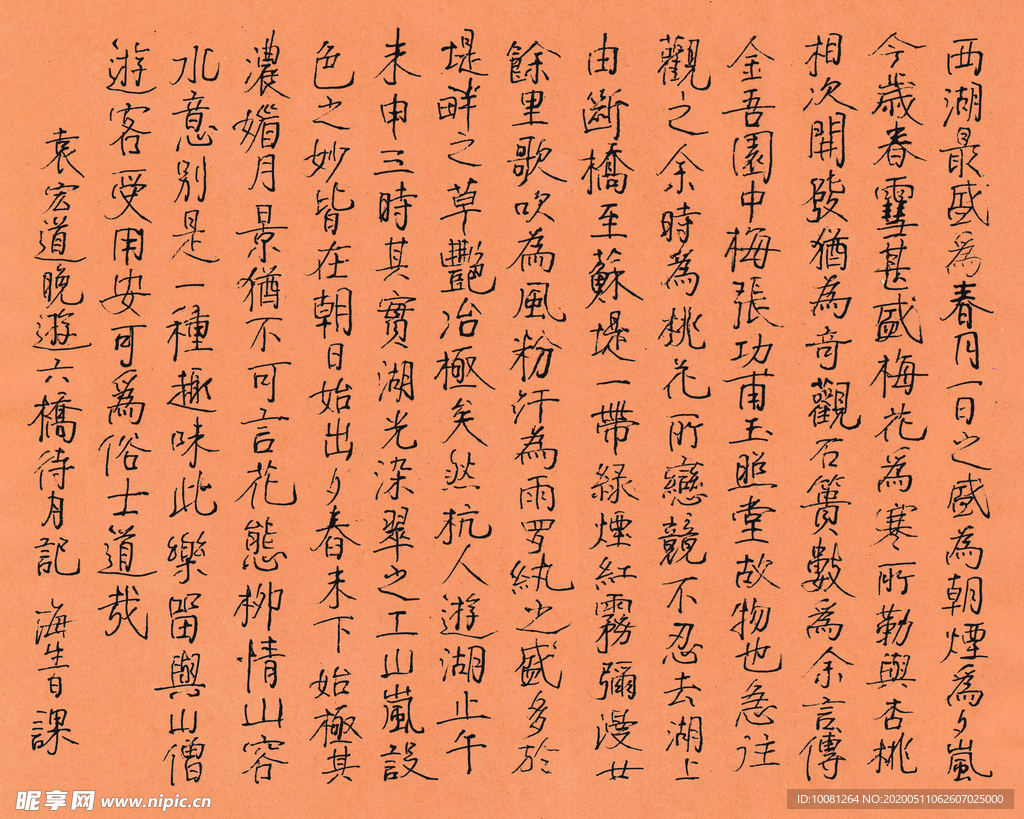 西湖最盛為春月一日之盛為朝煙為夕嵐
今歲春雪甚盛梅花為寒所勒與杏桃
相次開發猶為奇觀石簣數為余言傳
金吾園中梅張功甫玉照堂故物也急往
觀之余時為桃花所戀競不忍去湖上
由斷橋至蘇堤一帶綠煙紅霧彌漫廿
餘里歌吹為風粉汗為雨罗紈之盛多於
堤畔之草艷冶極矣然杭人遊湖止午
未申三時其實湖光染翠之工山嵐設
色之妙皆在朝日始出夕舂未下始極其
濃媚月景猶不可言花態柳情山容
水意別是一種趣味此樂留與山僧
遊客受用安可為俗士道哉
袁宏道晚遊六橋待月記 海生白課
昵享网 www.nipic.cn
ID:10081264 NO:20200511062607025000